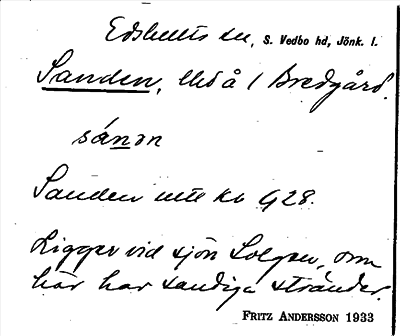 Edshults sn, S. Vedbo hd, Jönk. l.
Sanden, thså / Bredgård.
sánən
Sanden utte kv G28.
Ligger vid sjön Solgen, som
här har sandiga stränder.
FRITZ ANDERSSON 1933